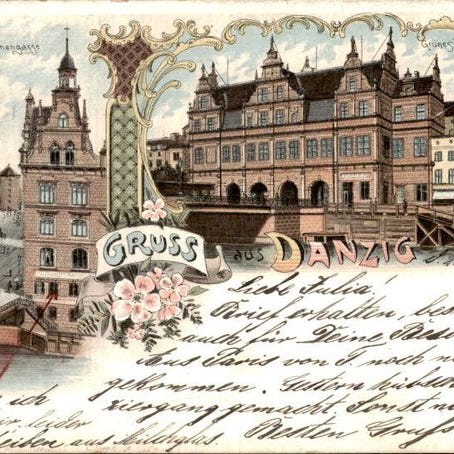 nengasse
Grünes
GRUSS aus DANZIG
Liebe Julia!
Brief erhalten, bes
auch für Deine
Aus Paris von J. noch n
gekommen. Gestern hübsch
ziergang gemacht. Sonst n
ich
leider
aus
Besten Gruß